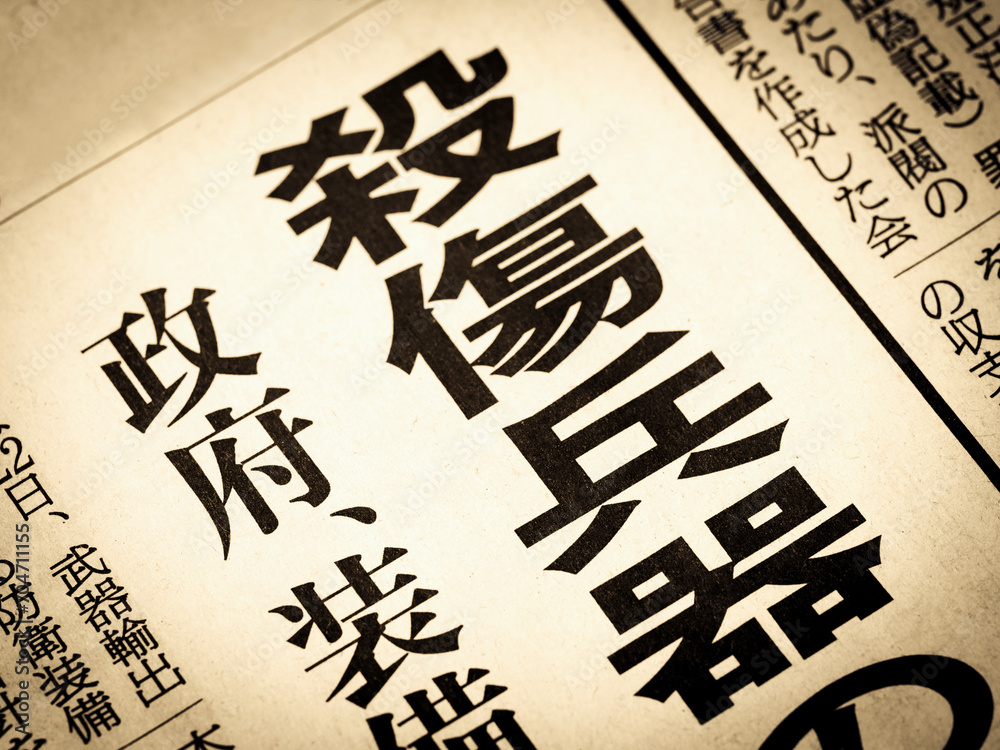 規正法
虚偽記載)
あたり、派閥の
告書を作成した会
を
の収支
殺傷兵器の
政府、装備
2日、武器輸出
防衛装備
Adobe Stock